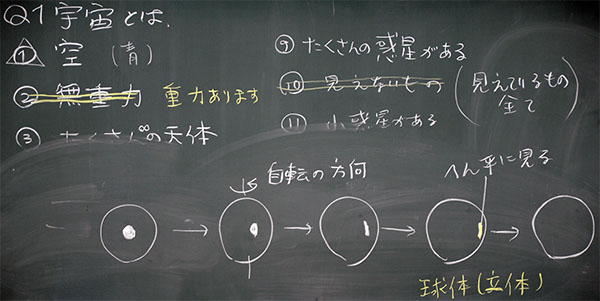 Q1 宇宙とは、
① 空 (青)
② 無重力 重力あります
③ たくさん∞の天体
⑨ たくさんの惑星がある
⑩ 見えないもの (見えているもの
全て)
⑪ 小惑星がある
自転の方向
へん平に見る
球体(立体)